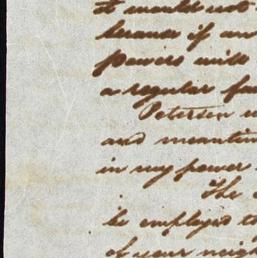 it would not
because if our
powers will
a regular fa
Petersen w
and meantim
in my power
The
be employed to
of your neigh